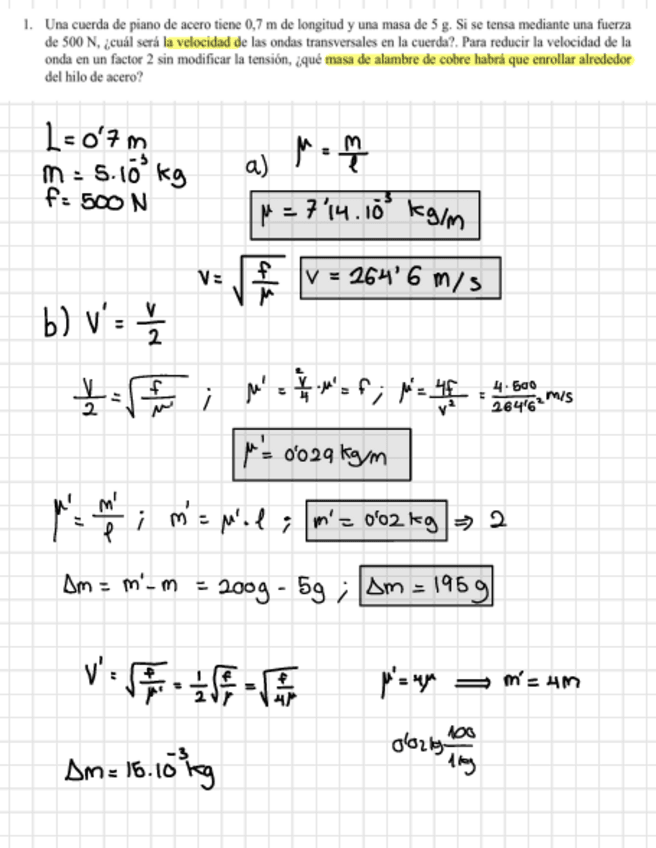 1. Una cuerda de piano de acero tiene 0,7 m de longitud y una masa de 5 g. Si se tensa mediante una fuerza
de 500 N, ¿cuál será la velocidad de las ondas transversales en la cuerda?. Para reducir la velocidad de la
onda en un factor 2 sin modificar la tensión, ¿qué masa de alambre de cobre habrá que enrollar alrededor
del hilo de acero?
L = 0'7 m
m = 5.10⁻³ kg
f = 500 N
a) μ = m/l
μ = 7'14.10⁻³ kg/m
v = √(f/μ) v = 264'6 m/s
b) v' = v/2
v/2 = √(f/μ') ; μ' = v²/4 . μ' = f ; μ' = 4f/v² = 4.500/264'6² m/s
μ' = 0'029 kg/m
μ' = m'/l ; m' = μ'.l ; m' = 0'02 kg ⇒ 2
Δm = m' - m = 200g - 5g ; Δm = 195 g
v' = √(f/μ') = 1/2 √(f/μ) = √(f/4μ)
μ' = 4μ ⟹ m' = 4m
0'02 kg 100/1kg
Δm = 15.10⁻³ kg